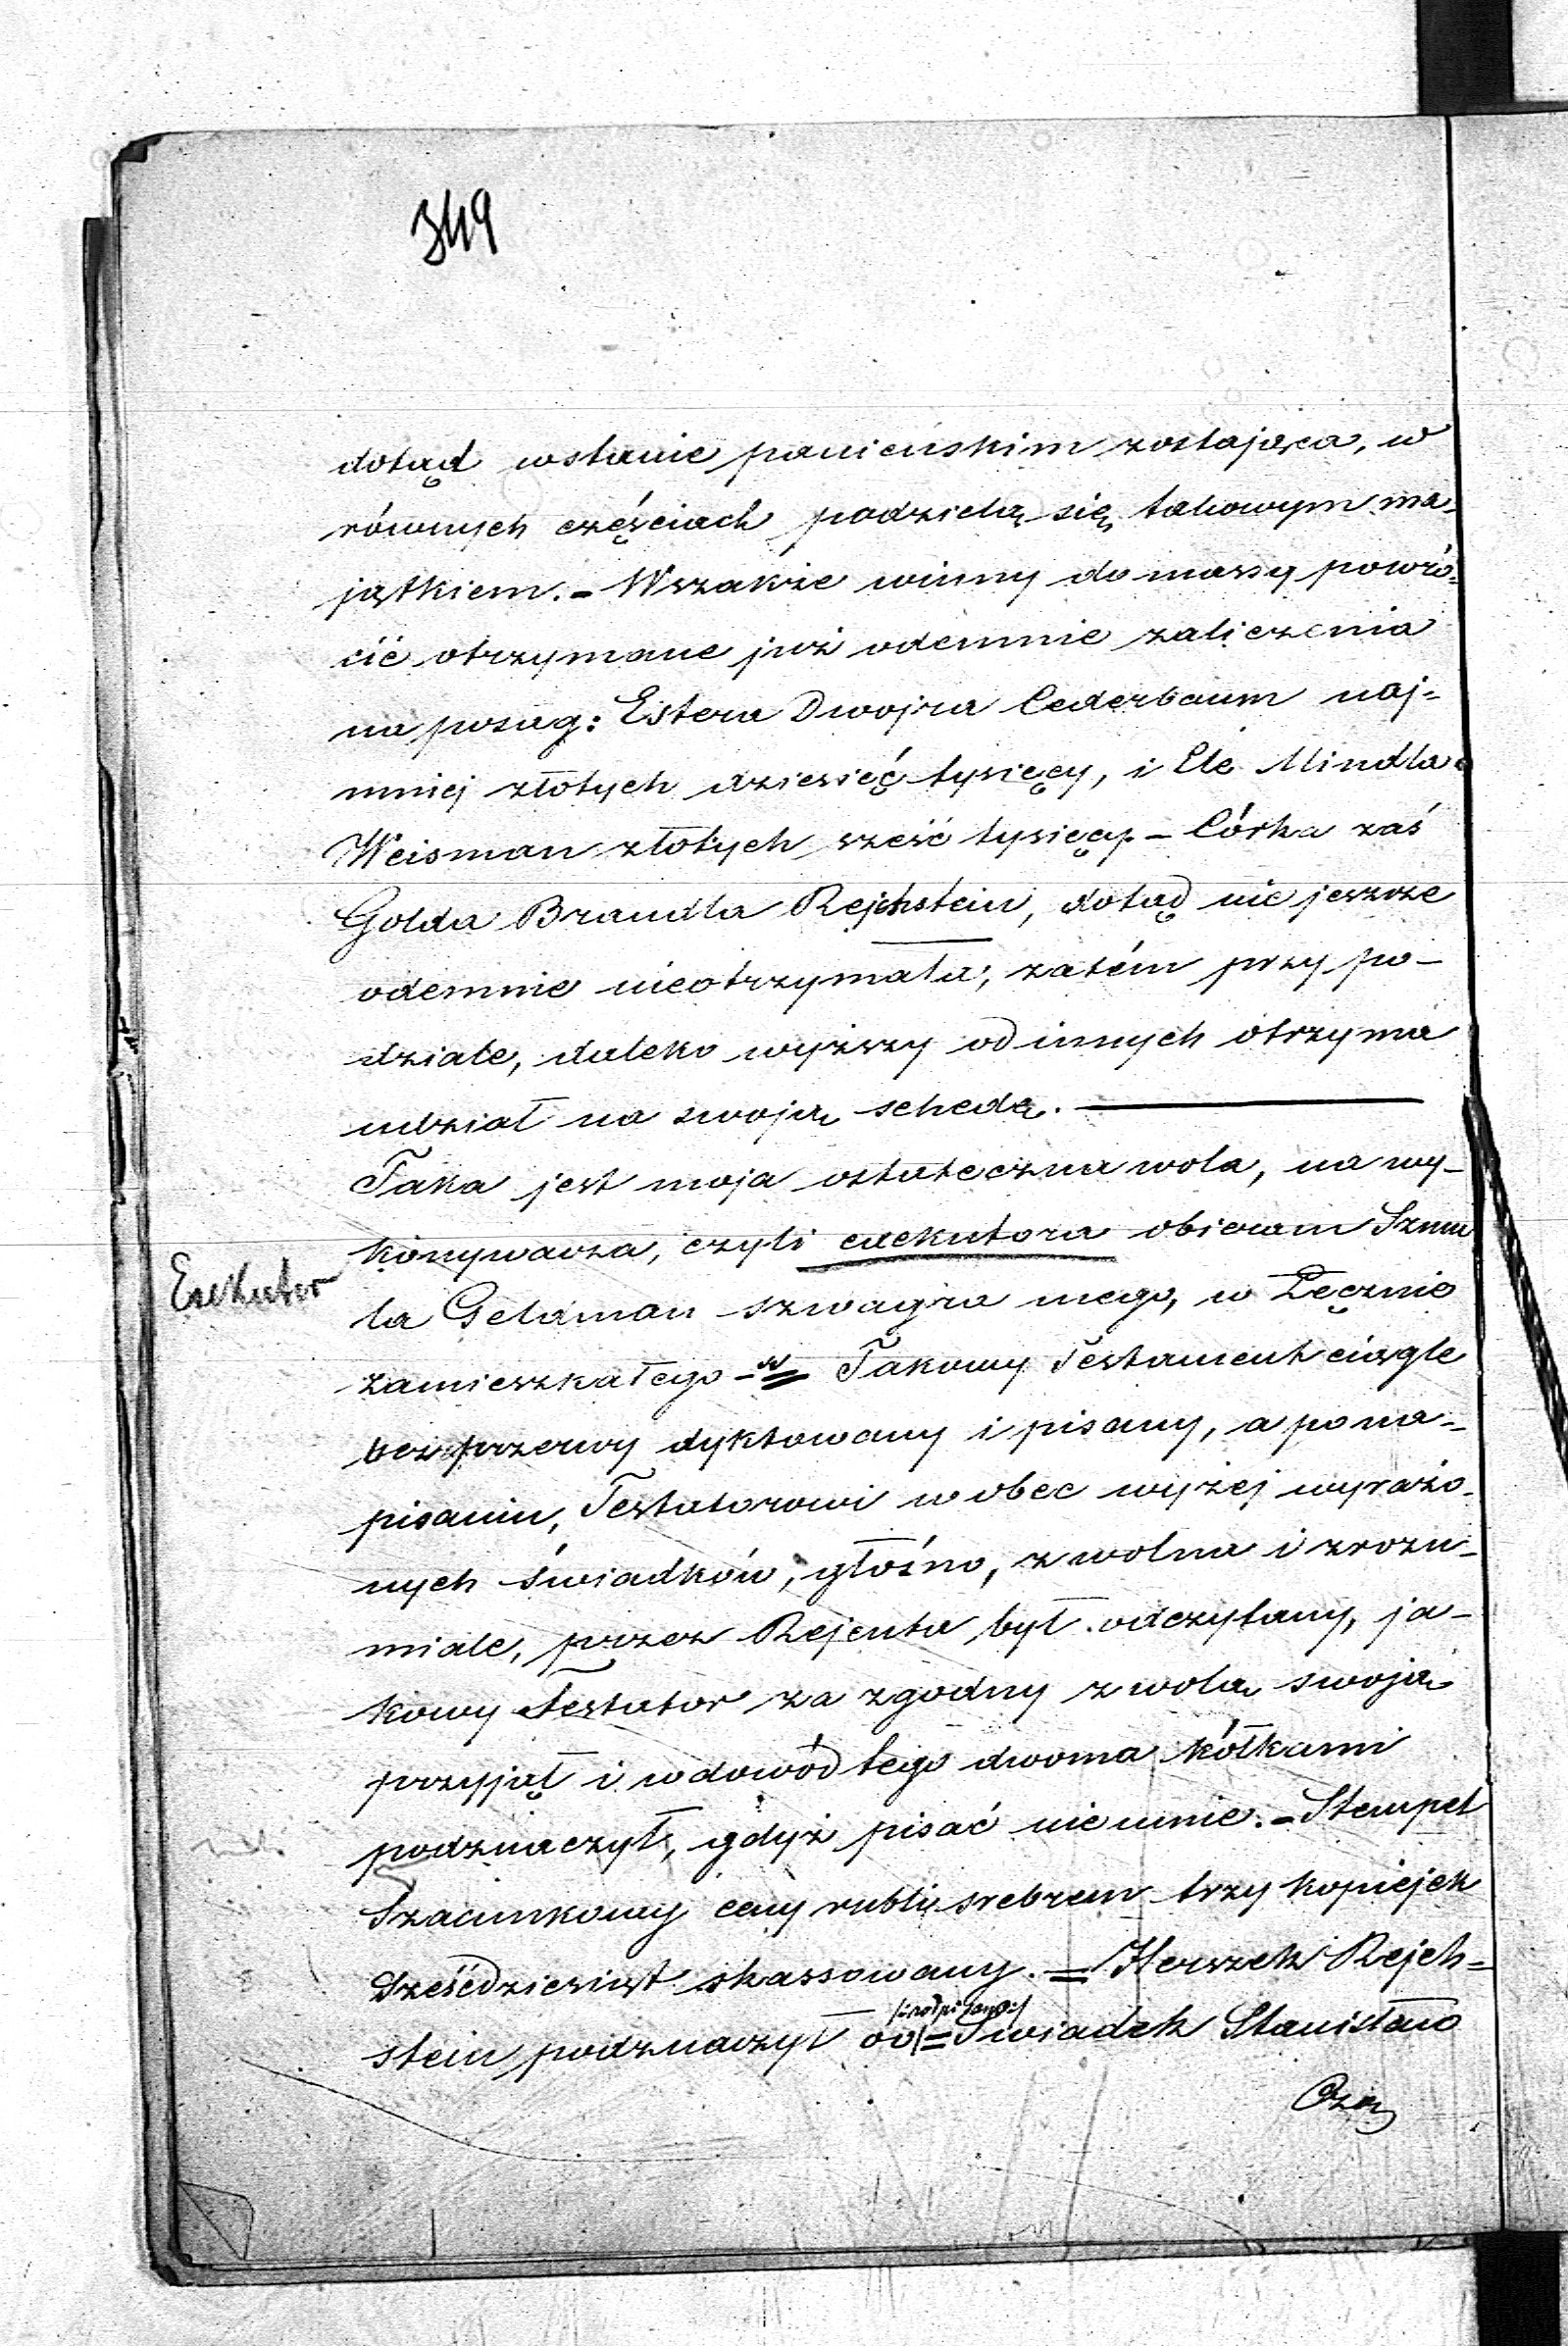 349
dotąd wstanie panieńskim zostająca, w
równych częściach podzielą się takowym ma-
jątkiem. - Wszakże winny do massy powró-
cić otrzymane już odemnie zaliczenia
na posag: Estera Dwojra Cederbaum naj-
mniej złotych dziesięć tysięcy, i Ele Mindla
Weisman złotych sześć tysięcy. - Córka zaś
Golda Brandla Rejchstein, dotąd nic jeszcze
odemnie nieotrzymała, zatém przy po-
dziale, daleko wyższy od innych otrzyma
udział na swoją schedę.
Taka jest moja ostateczna wola, na wy-
konywacza, czyli exekutora obieram Szmu
Exekutor
la Geldman szwagra mego, w Łęcznie
zamieszkałego = Takowy Testament ciągle
bez przerwy dyktowany i pisany, a po na-
pisaniu, Testatorowi wobec wyżej wyrażo-
nych świadków, głośno, zwolna i zrozu-
miale, przez Rejenta był odczytany, ja-
kowy Testator za zgodny z wolą swoją
przyjął i w dowód tego dwoma kółkami
podznaczył, gdyż pisać nieumie. - Stempel
Szacunkowy ceny rubli srebrem trzy kopiejek
sześćdziesiąt skassowany. = Herszek Rejch=
stein podznaczył oo /:podpisany:/ = Świadek Stanisław